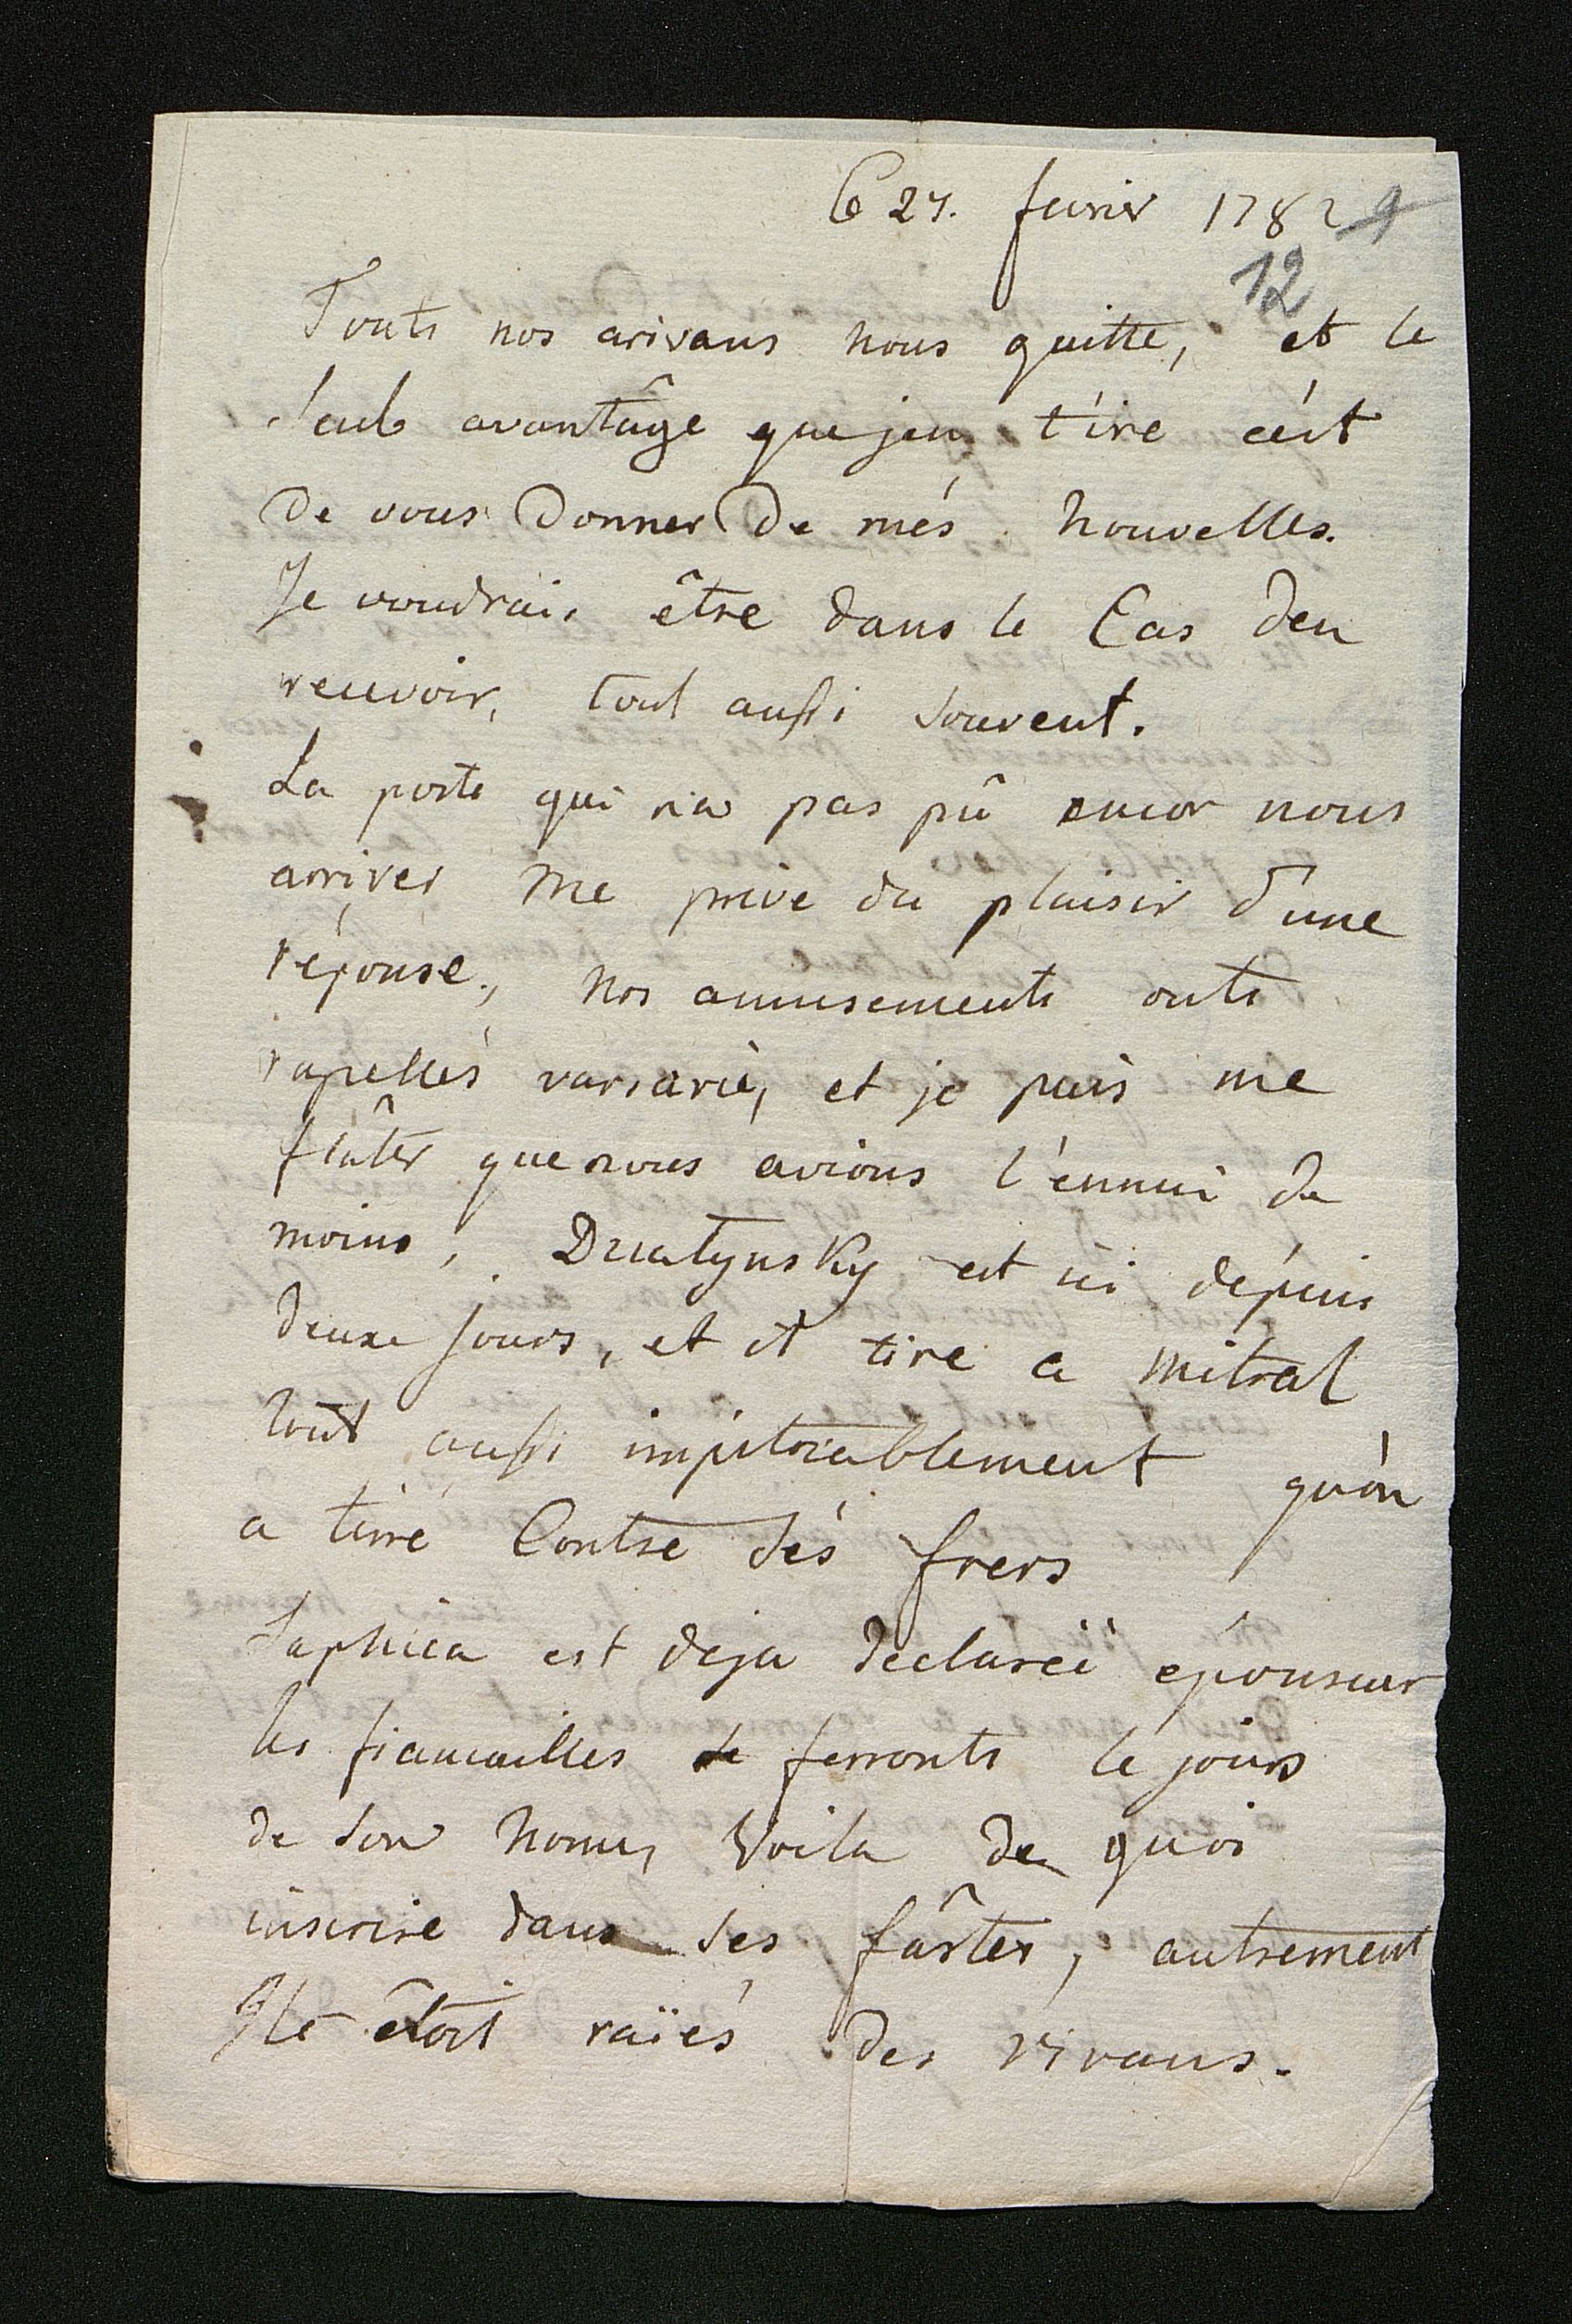 Ce 27. fevrier 1782 9
12
Touts nos arivans nous quitte, et le
seul avantâge que jen tire c'ést
de vous donner de més nouvelles.
Je voudrais être dans le Cas den
recevoir, tout aussi souvent.
La poste qui n'a pas pû encor nous
arriver me prive du plaisir d'une
réponse, nos amusements onts
rapellés varsavie, et je puis me
flâter que nous avions l'ennui de
moins, est ici dépuis
deuxe jours, et il tire a mitral
tout aussi impitoiablement qu'on
a tirré Contre sés frers
Saphiea est deja declaréé épouseur
les fiancailles se ferronts le jours
de son nome, Voila de quoi
inscrire dans ses fâstes, autrement
Ile étoit raïés des vivans.